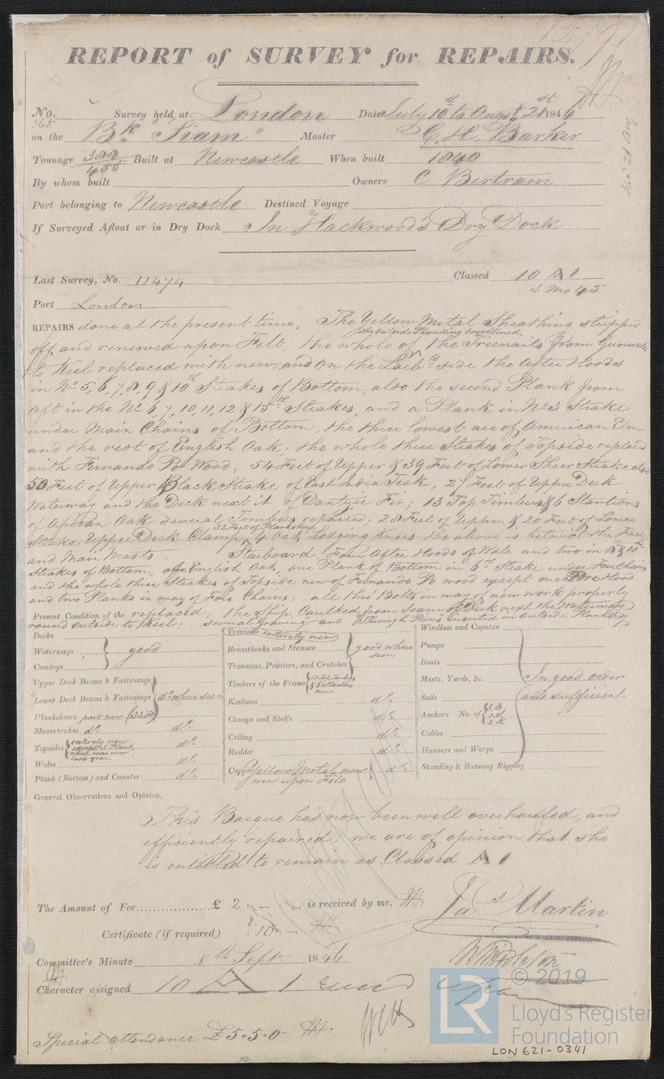 REPORT of SURVEY for REPAIRS.
No. 365 Survey held at London Date July 10th to Augst 21st 1846
on the Bk "Siam" Master C. H. Barker
Tonnage 388/450 Built at Newcastle When built 1840
By whom built Owners C Bertram
Port belonging to Newcastle Destined Voyage
If Surveyed Afloat or in Dry Dock In Hackwood's Dry Dock
Last Survey, No. 11474 Classed 10 A 1
Port London 3 Mo 45
REPAIRS done at the present time. The Yellow Metal Sheathing stripped
off and renewed upon Felt. the whole of the Treenails from Gunwale
to Keel replaced with new, and on the Larbd side the After Hoods
in No 5, 6, 7, 8, 9 & 10th Strakes of Bottom, also the second Plank from
aft in the No 6, 7, 10, 11, 12 & 15th Strakes, and a Plank in No 3 Strake
under Main Chains of Bottom, the three lowest are of American Elm
and the rest of English Oak. the whole three Strakes of Topside replaced
with Fernando Po Wood, 54 Feet of Upper & 39 Feet of Lower Sheer Strake also
50 Feet of Upper Black Strake of East India Teak, 27 Feet of Upper Deck
Waterway and the Deck next it of Dantzic Fir; 13 Top Timbers & 6 Stantions
of African Oak several Timbers repaired; 28 Feet of Upper & 20 Feet of Lower
Strake Upper Deck Clamps Oak Lodging knees the above is between the Fore
and Main Masts. Starboard From After Hoods of Wale and two in 8 & 10th
Strakes of Bottom, English Oak, one Plank of Bottom in 6th Strake under Fore Chains
and the whole three Strakes of Topside new of Fernando Po wood except one Fore Hood
and two Planks in way of Fore Chains. all the Bolts in way of new work properly
Present Condition of the replaced, the Ship Caulked from seam of Deck next the Waterway
round outside to Keel; several
Decks
Waterways good
Comings
Upper Deck Beams & Fastenings
Lower Deck Beams & Fastenings do where seen
Planksheers part new
Sheerstrakes do do
Topsides entirely new except 3 Planks which were new last year do
Wales do
Plank (Bottom) and Counter do
Treenails entirely new
Breasthooks and Stemson good where seen
Transoms, Pointers, and Crutches
Timbers of the Frame new
Keelsons do
Clamps and Shelfs do
Ceiling do
Rudder do
Copper Yellow Metal now new upon Felt do
Windlass and Capstan
Pumps
Boats
Masts, Yards, &c. In good order
Sails and sufficient
Anchors No. of
Cables
Hawsers and Warps
Standing & Running Rigging
General Observations and Opinion,
This Barque has now been well overhauled, and
efficiently repaired; we are of opinion that she
is entitled to remain as Classed A 1
The Amount of Fee £ 2 is received by me, Jas Martin
Certificate (if required) 10
Committee's Minute 8th Sept 1846
Character assigned 10 A 1
Special attendance £5.5.0
© 2019
LR
Lloyd's Register
Foundation
LON 621-0341